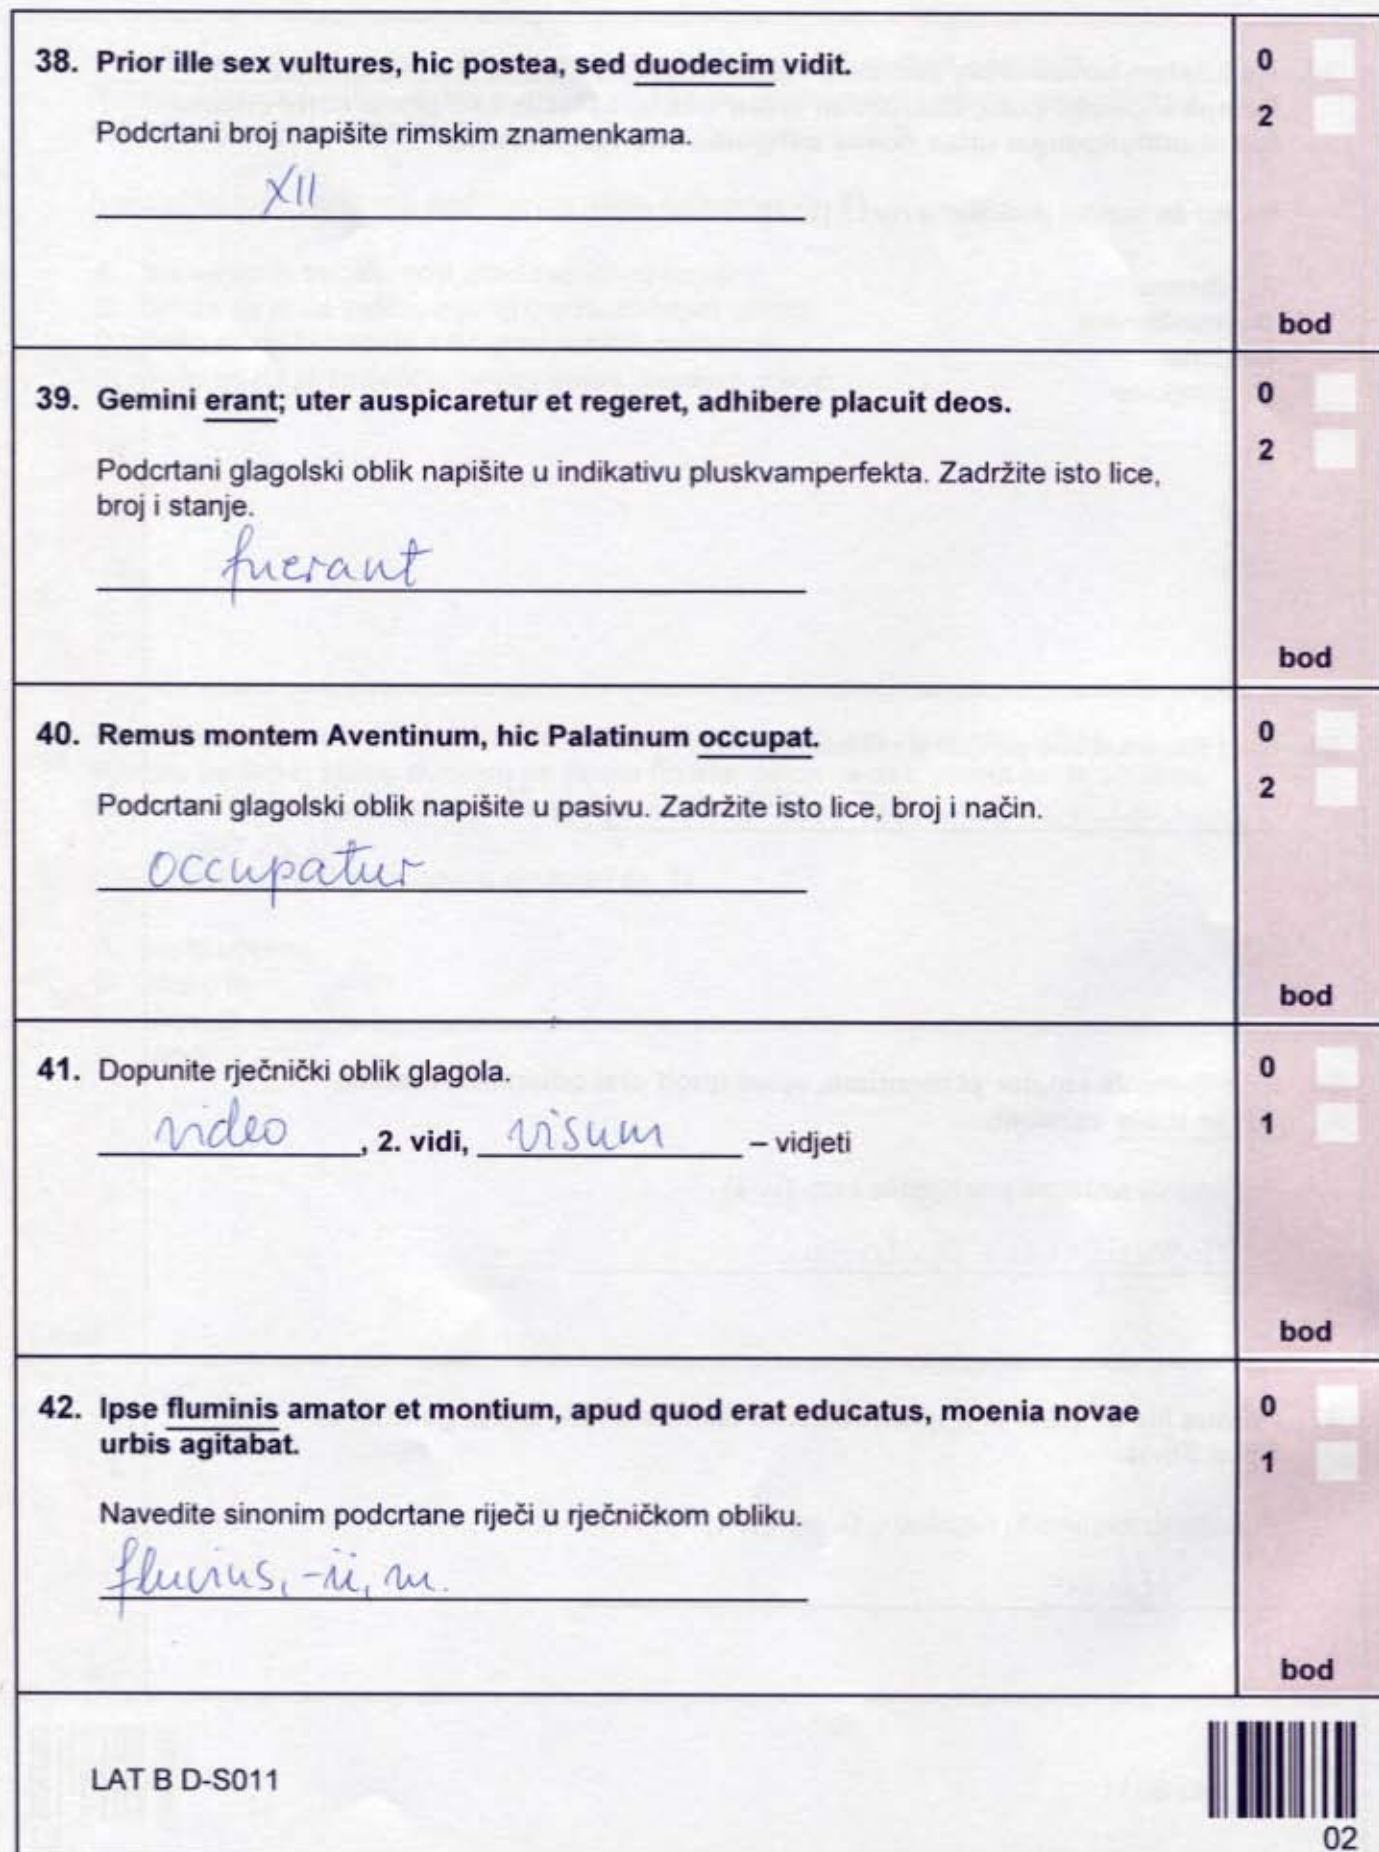 38. Prior ille sex vultures, hic postea, sed duodecim vidit.
0
2
Podcrtani broj napišite rimskim znamenkama.
XII
bod
39. Gemini erant; uter auspicaretur et regeret, adhibere placuit deos.
0
2
Podcrtani glagolski oblik napišite u indikativu pluskvamperfekta. Zadržite isto lice,
broj i stanje.
fuerant
bod
40. Remus montem Aventinum, hic Palatinum occupat.
0
2
Podcrtani glagolski oblik napišite u pasivu. Zadržite isto lice, broj i način.
occupatur
bod
41. Dopunite rječnički oblik glagola.
0
1
video, 2. vidi, visum – vidjeti
bod
42. Ipse fluminis amator et montium, apud quod erat educatus, moenia novae
urbis agitabat.
0
1
Navedite sinonim podcrtane riječi u rječničkom obliku.
fluvius, -ii, m.
bod
LAT B D-S011
02